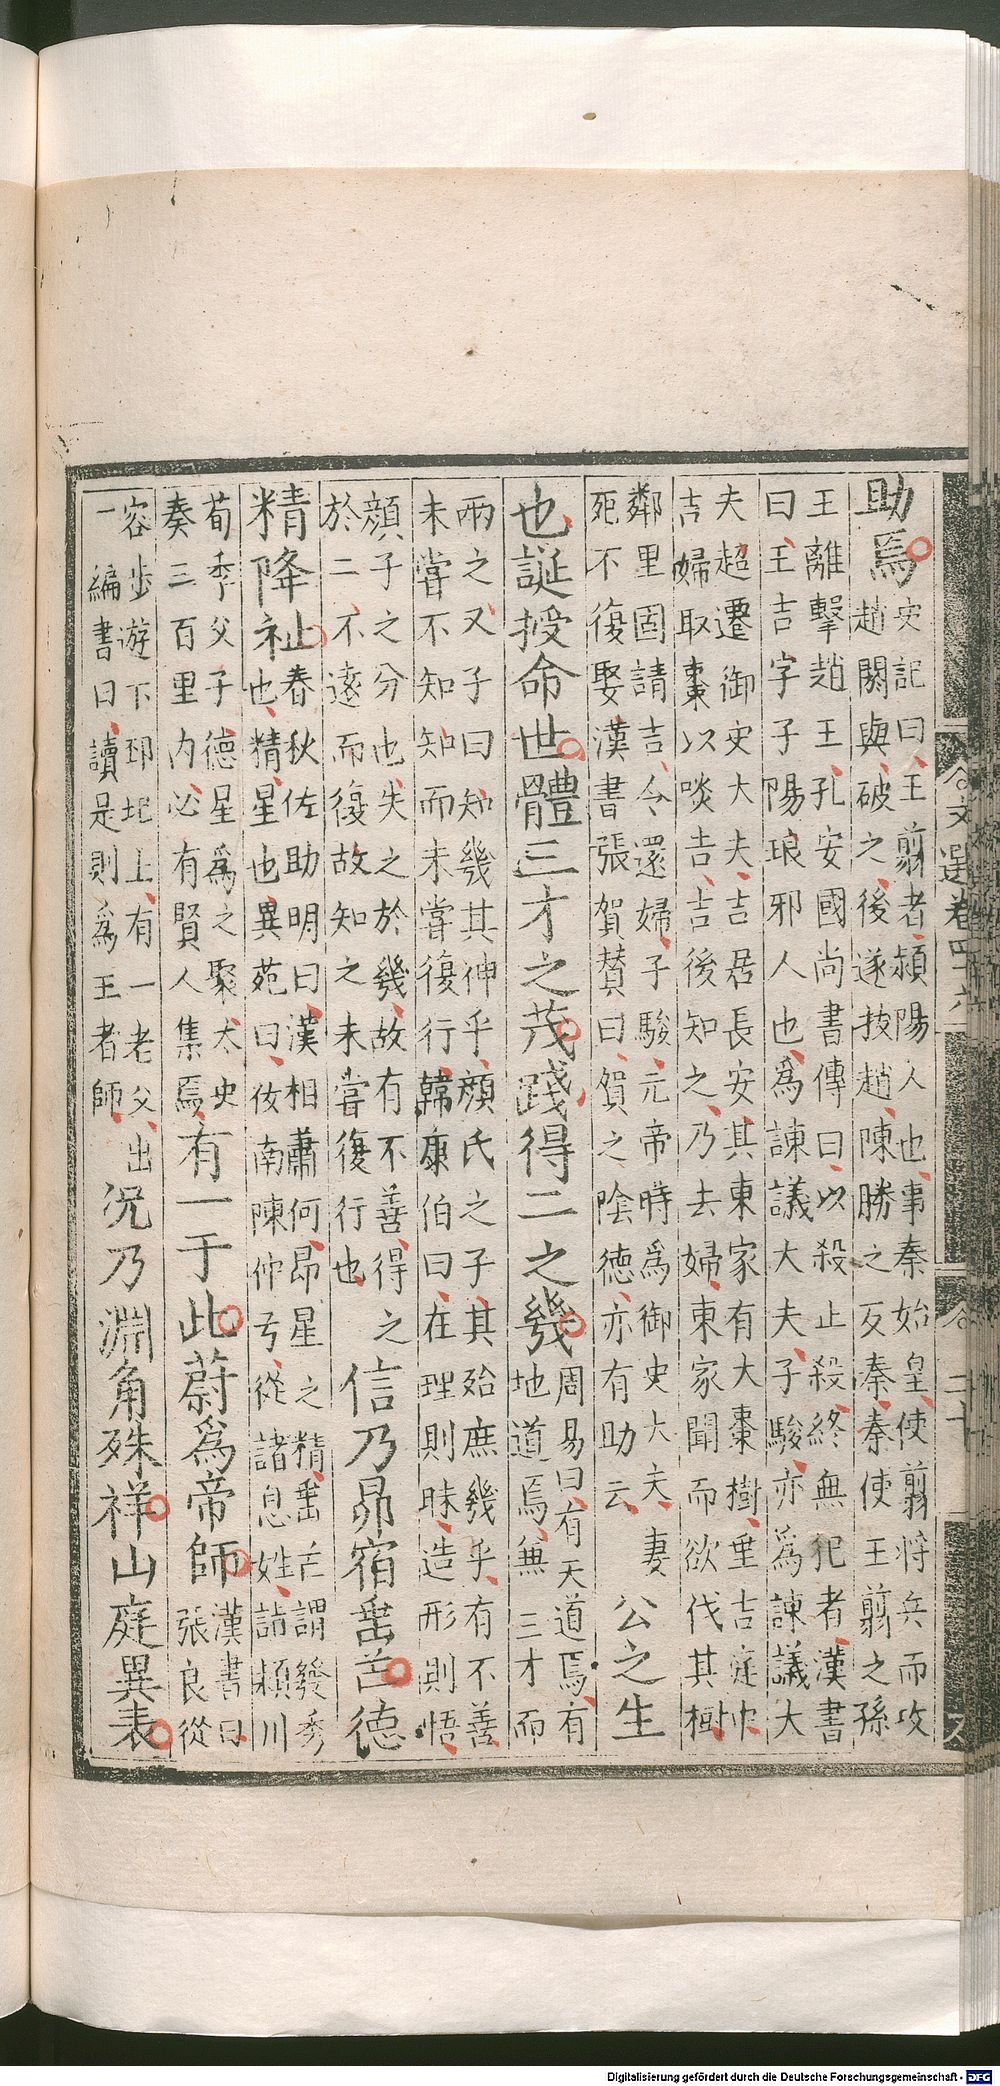 文選卷四十六
二十
助焉
史記曰王翦者頻陽人也事秦始皇使翦將兵而攻
趙閼與破之後遂拔趙陳勝之反秦秦使王翦之孫
王離擊趙王孔安國尚書傳曰以殺止殺終無犯者漢書
曰王吉字子陽琅邪人也為諫議大夫子駿亦為諫議大
夫超遷御史大夫吉居長安其東家有大棗樹垂吉庭中
吉婦取棗以啖吉吉後知之乃去婦東家聞而欲伐其樹
鄰里固請吉令還婦子駿元帝時為御史大夫妻
死不復娶漢書張賀賛曰賀之陰德亦有助云
公之生
也誕授命世體三才之茂踐得二之幾
周易曰有天道焉有
地道焉無三才而
兩之又子曰知幾其神乎顏氏之子其殆庶幾乎有不善
未嘗不知知而未嘗復行韓康伯曰在理則昧造形則悟
顏子之分也失之於幾故有不善得之
於二不遠而復故知之未嘗復行也
信乃昴宿垂芒德
精降祉
春秋佐助明曰漢相蕭何昴星之精垂芒謂發秀
也精星也異苑曰汝南陳仲弓從諸息姪詣潁川
荀季父子德星為之聚太史
奏三百里內必有賢人集焉
有一于此蔚為帝師
漢書曰
張良從
容步遊下邳圯上有一老父出
一編書曰讀是則為王者師
況乃淵角殊祥山庭異表
Digitalisierung gefördert durch die Deutsche Forschungsgemeinschaft - DFG